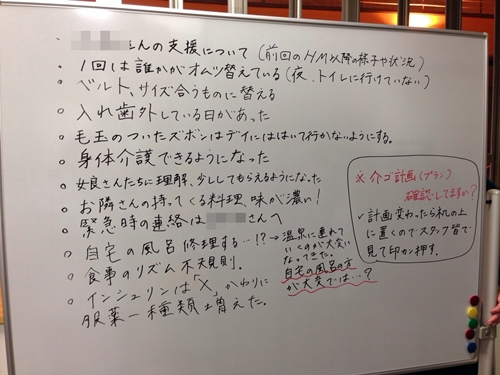 ・さんの支援について (前回のHM以降の様子や状況)
・1回は誰かがオムツ替えている (夜、トイレに行けていない)
・ベルト、サイズ合うものに替える
・入れ歯外している日があった
・毛玉のついたズボンはデイにははいて行かないようにする。
・身体介護できるようになった
・女良さんたちに理解、少ししてもらえるようになった
・お隣さんの持ってくる料理、味が濃い!
・緊急時の連絡は さんへ
・自宅の風呂修理する…!?→温泉に連れて
いくのが大変に
なってきた。
自宅の風呂の方
が大変では…?
・食事のリズム不規則。
・インシュリンは「X」かわりに
服薬一種類増えた。
※介ゴ計画(プラン)
確認してますか?
✓計画変わったら机の上
に置くのでスタッフ皆で
見て印か押す。